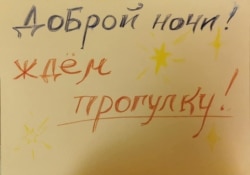 Доброй ночи!
ждём
прогулку!